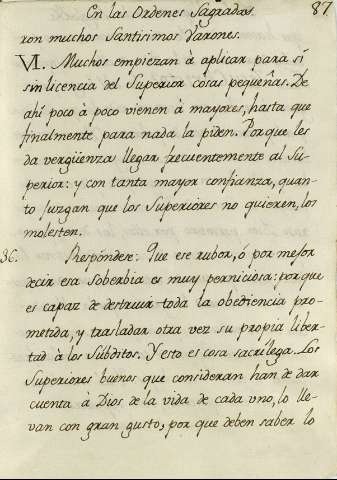 En las Ordenes Sagradas. 87
ron muchos Santisimos Varones.
VI. Muchos empiezan à aplicar para sí
sin licencia del Superior cosas pequeñas. De
ahí poco à poco vienen à mayores, hasta que
finalmente para nada la piden. Porque les
da vergüenza llegar frecuentemente al Su-
perior: y con tanta mayor confianza, quan-
to juzgan que los Superiores no quieren, los
molesten.
36. Respóndese: Que ese rubor, ó por mejor
decir esa Soberbia es muy perniciosa: porque
es capaz de destruir toda la obediencia pro-
metida, y trasladar otra vez su propia liber-
tad à los Subditos. Y esto es cosa sacrílega. Los
Superiores buenos que consideran han de dar
cuenta à Dios de la vida de cada uno, lo lle-
van con gran gusto, por que deben saber lo